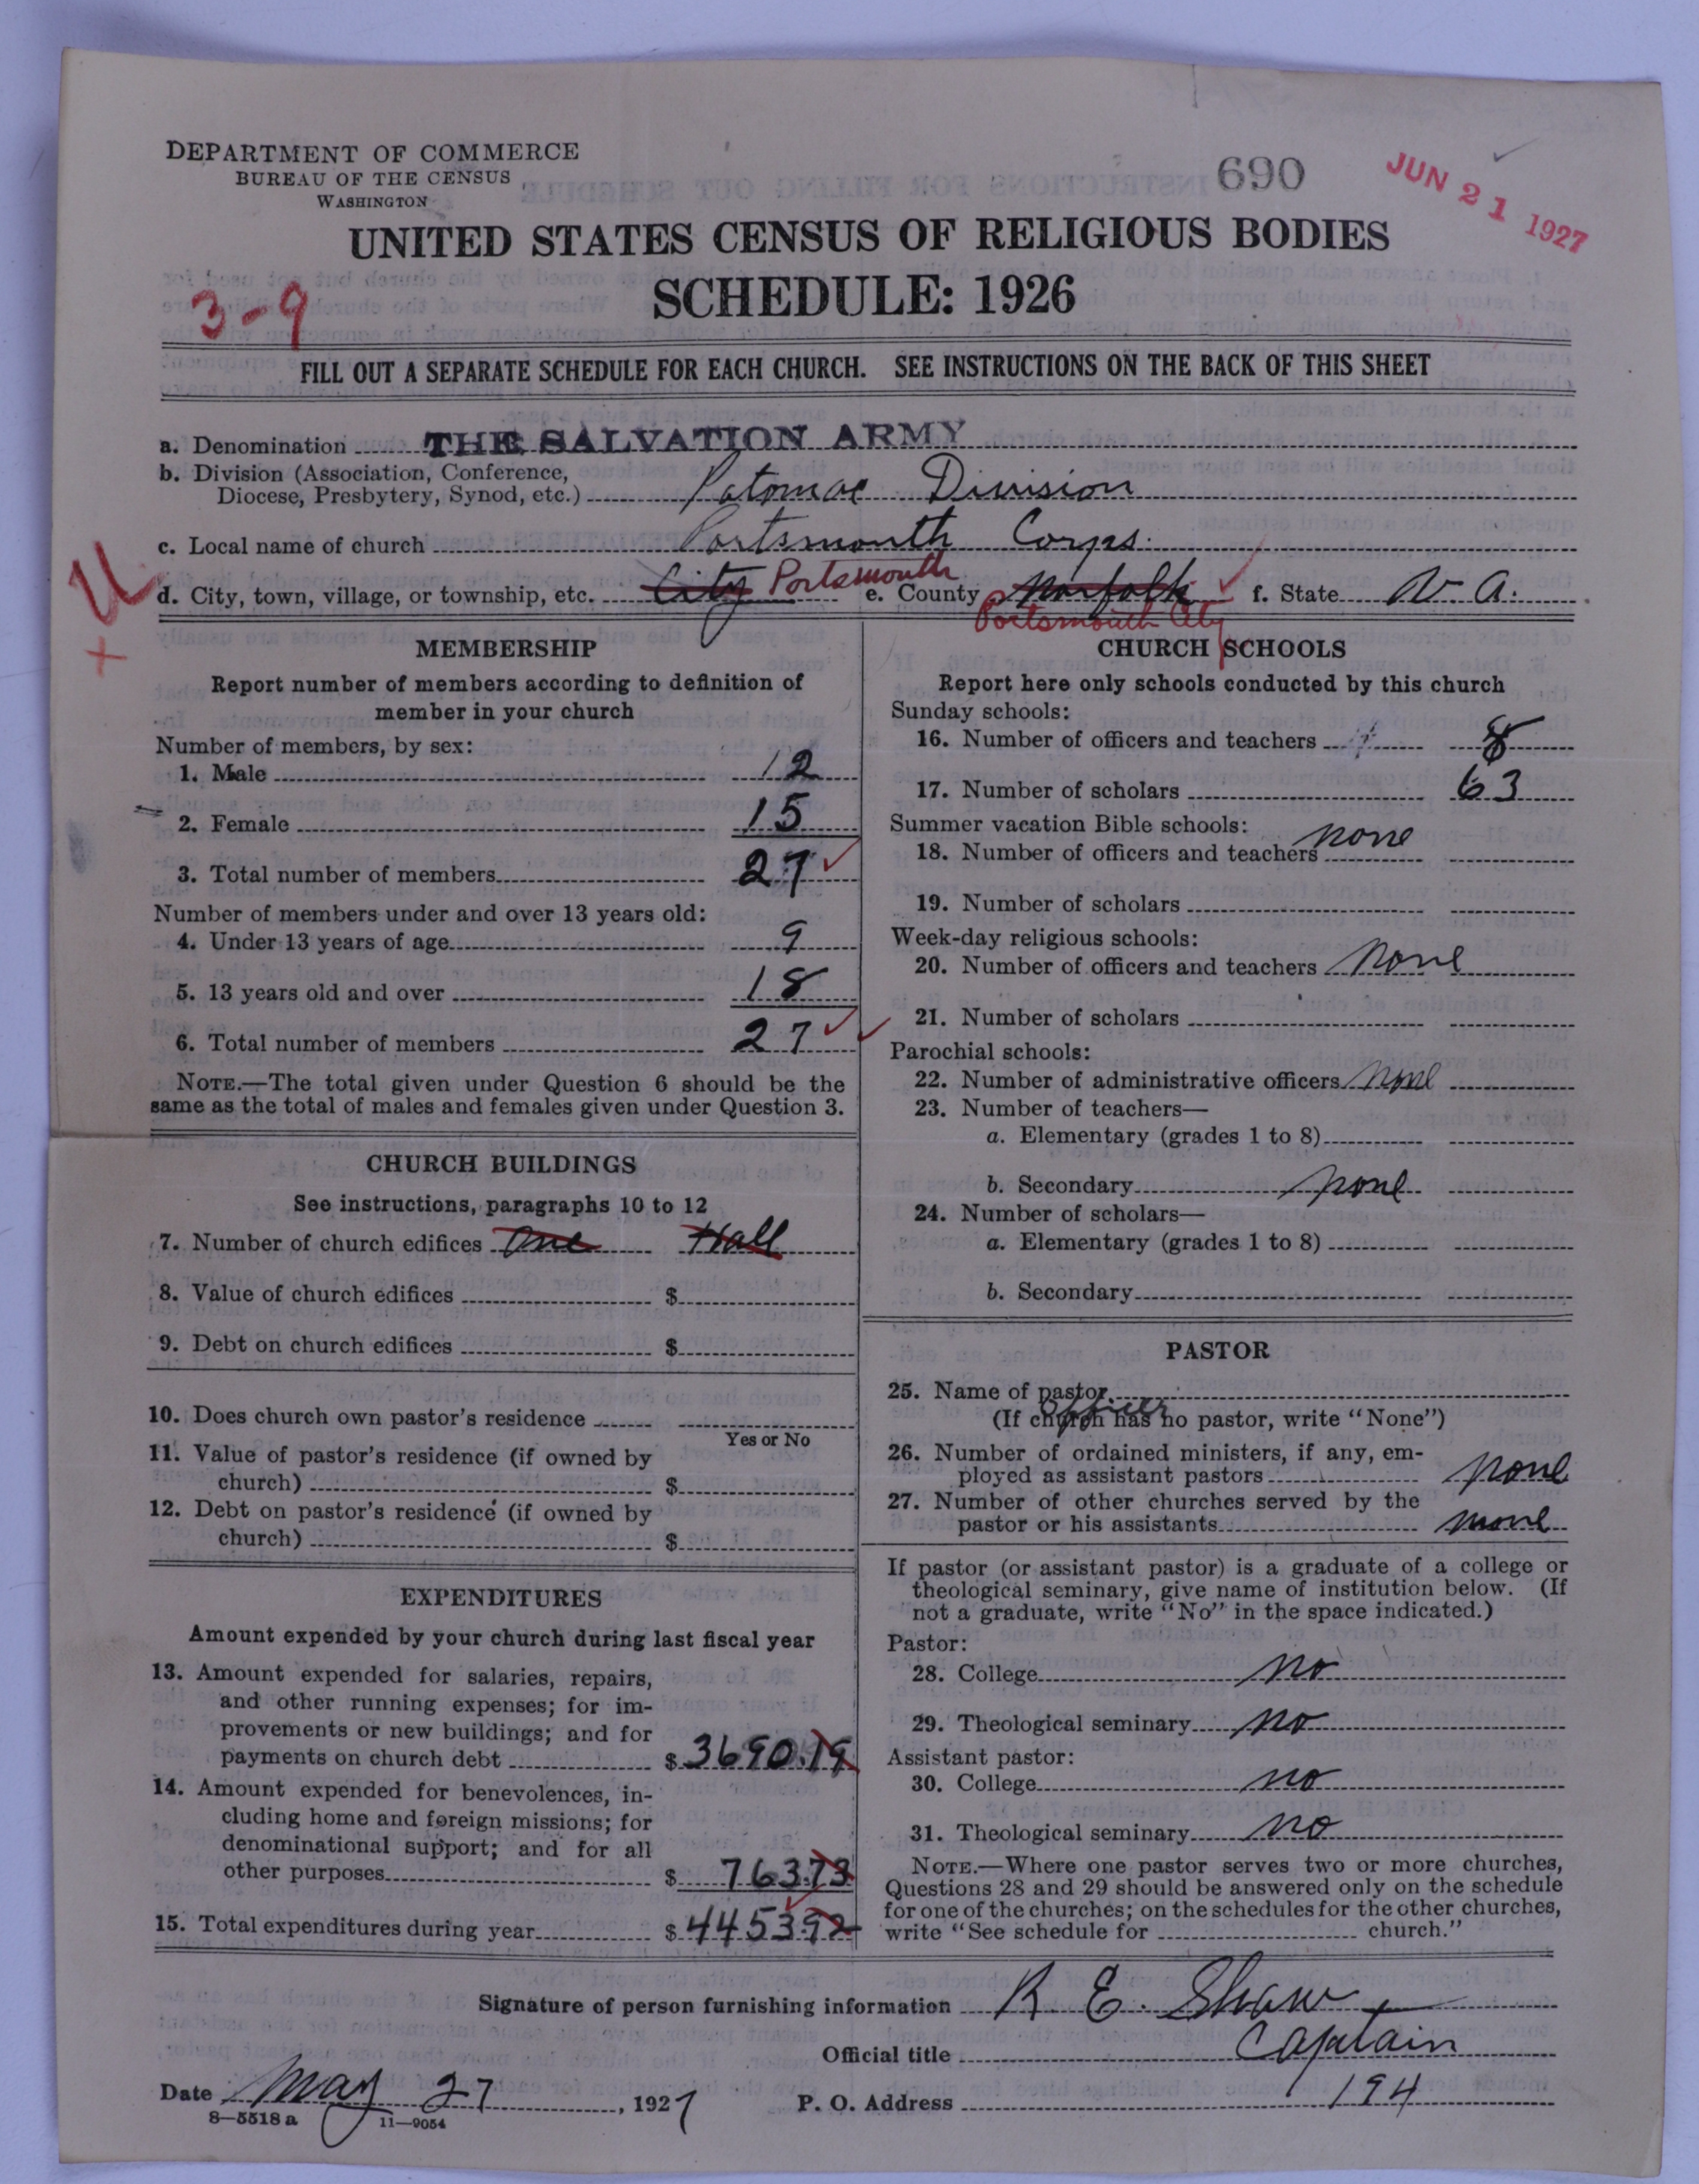 DEPARTMENT OF COMMERCE
BUREAU OF THE CENSUS
WASHINGTON
690
JUN 21 1927
UNITED STATES CENSUS OF RELIGIOUS BODIES
SCHEDULE: 1926
3-9
FILL OUT A SEPARATE SCHEDULE FOR EACH CHURCH. SEE INSTRUCTIONS ON THE BACK OF THIS SHEET
a. Denomination THE SALVATION ARMY
b. Division (Association, Conference,
Diocese, Presbytery, Synod, etc.) Patomac Division
c. Local name of church Portsmouth Corps.
d. City, town, village, or township, etc. City Portsmouth e. County Norfolk f. State V A.
Portsmouth City
MEMBERSHIP
Report number of members according to definition of
member in your church
Number of members, by sex:
1. Male 12
2. Female 15
3. Total number of members 27
Number of members under and over 13 years old:
4. Under 13 years of age 9
5. 13 years old and over 18
6. Total number of members 27
NOTE.—The total given under Question 6 should be the
same as the total of males and females given under Question 3.
CHURCH BUILDINGS
See instructions, paragraphs 10 to 12
7. Number of church edifices One Hall
8. Value of church edifices $
9. Debt on church edifices $
10. Does church own pastor's residence
Yes or No
11. Value of pastor's residence (if owned by
church) $
12. Debt on pastor's residence (if owned by
church) $
EXPENDITURES
Amount expended by your church during last fiscal year
13. Amount expended for salaries, repairs,
and other running expenses; for im-
provements or new buildings; and for
payments on church debt $ 3690.19
14. Amount expended for benevolences, in-
cluding home and foreign missions; for
denominational support; and for all
other purposes $ 763.73
15. Total expenditures during year $ 4453.92
CHURCH SCHOOLS
Report here only schools conducted by this church
Sunday schools:
16. Number of officers and teachers 8
17. Number of scholars 63
Summer vacation Bible schools:
18. Number of officers and teachers none
19. Number of scholars
Week-day religious schools:
20. Number of officers and teachers none
21. Number of scholars
Parochial schools:
22. Number of administrative officers none
23. Number of teachers—
a. Elementary (grades 1 to 8)
b. Secondary none
24. Number of scholars—
a. Elementary (grades 1 to 8)
b. Secondary
PASTOR
25. Name of pastor
officer
(If church has no pastor, write "None")
26. Number of ordained ministers, if any, em-
ployed as assistant pastors none
27. Number of other churches served by the
pastor or his assistants none
If pastor (or assistant pastor) is a graduate of a college or
theological seminary, give name of institution below. (If
not a graduate, write "No" in the space indicated.)
Pastor:
28. College no
29. Theological seminary no
Assistant pastor:
30. College no
31. Theological seminary no
NOTE.—Where one pastor serves two or more churches,
Questions 28 and 29 should be answered only on the schedule
for one of the churches; on the schedules for the other churches,
write "See schedule for church."
Signature of person furnishing information R E. Shaw
Official title Captain
Date May 27, 1927 P. O. Address 194
8—5518 a 11—9054